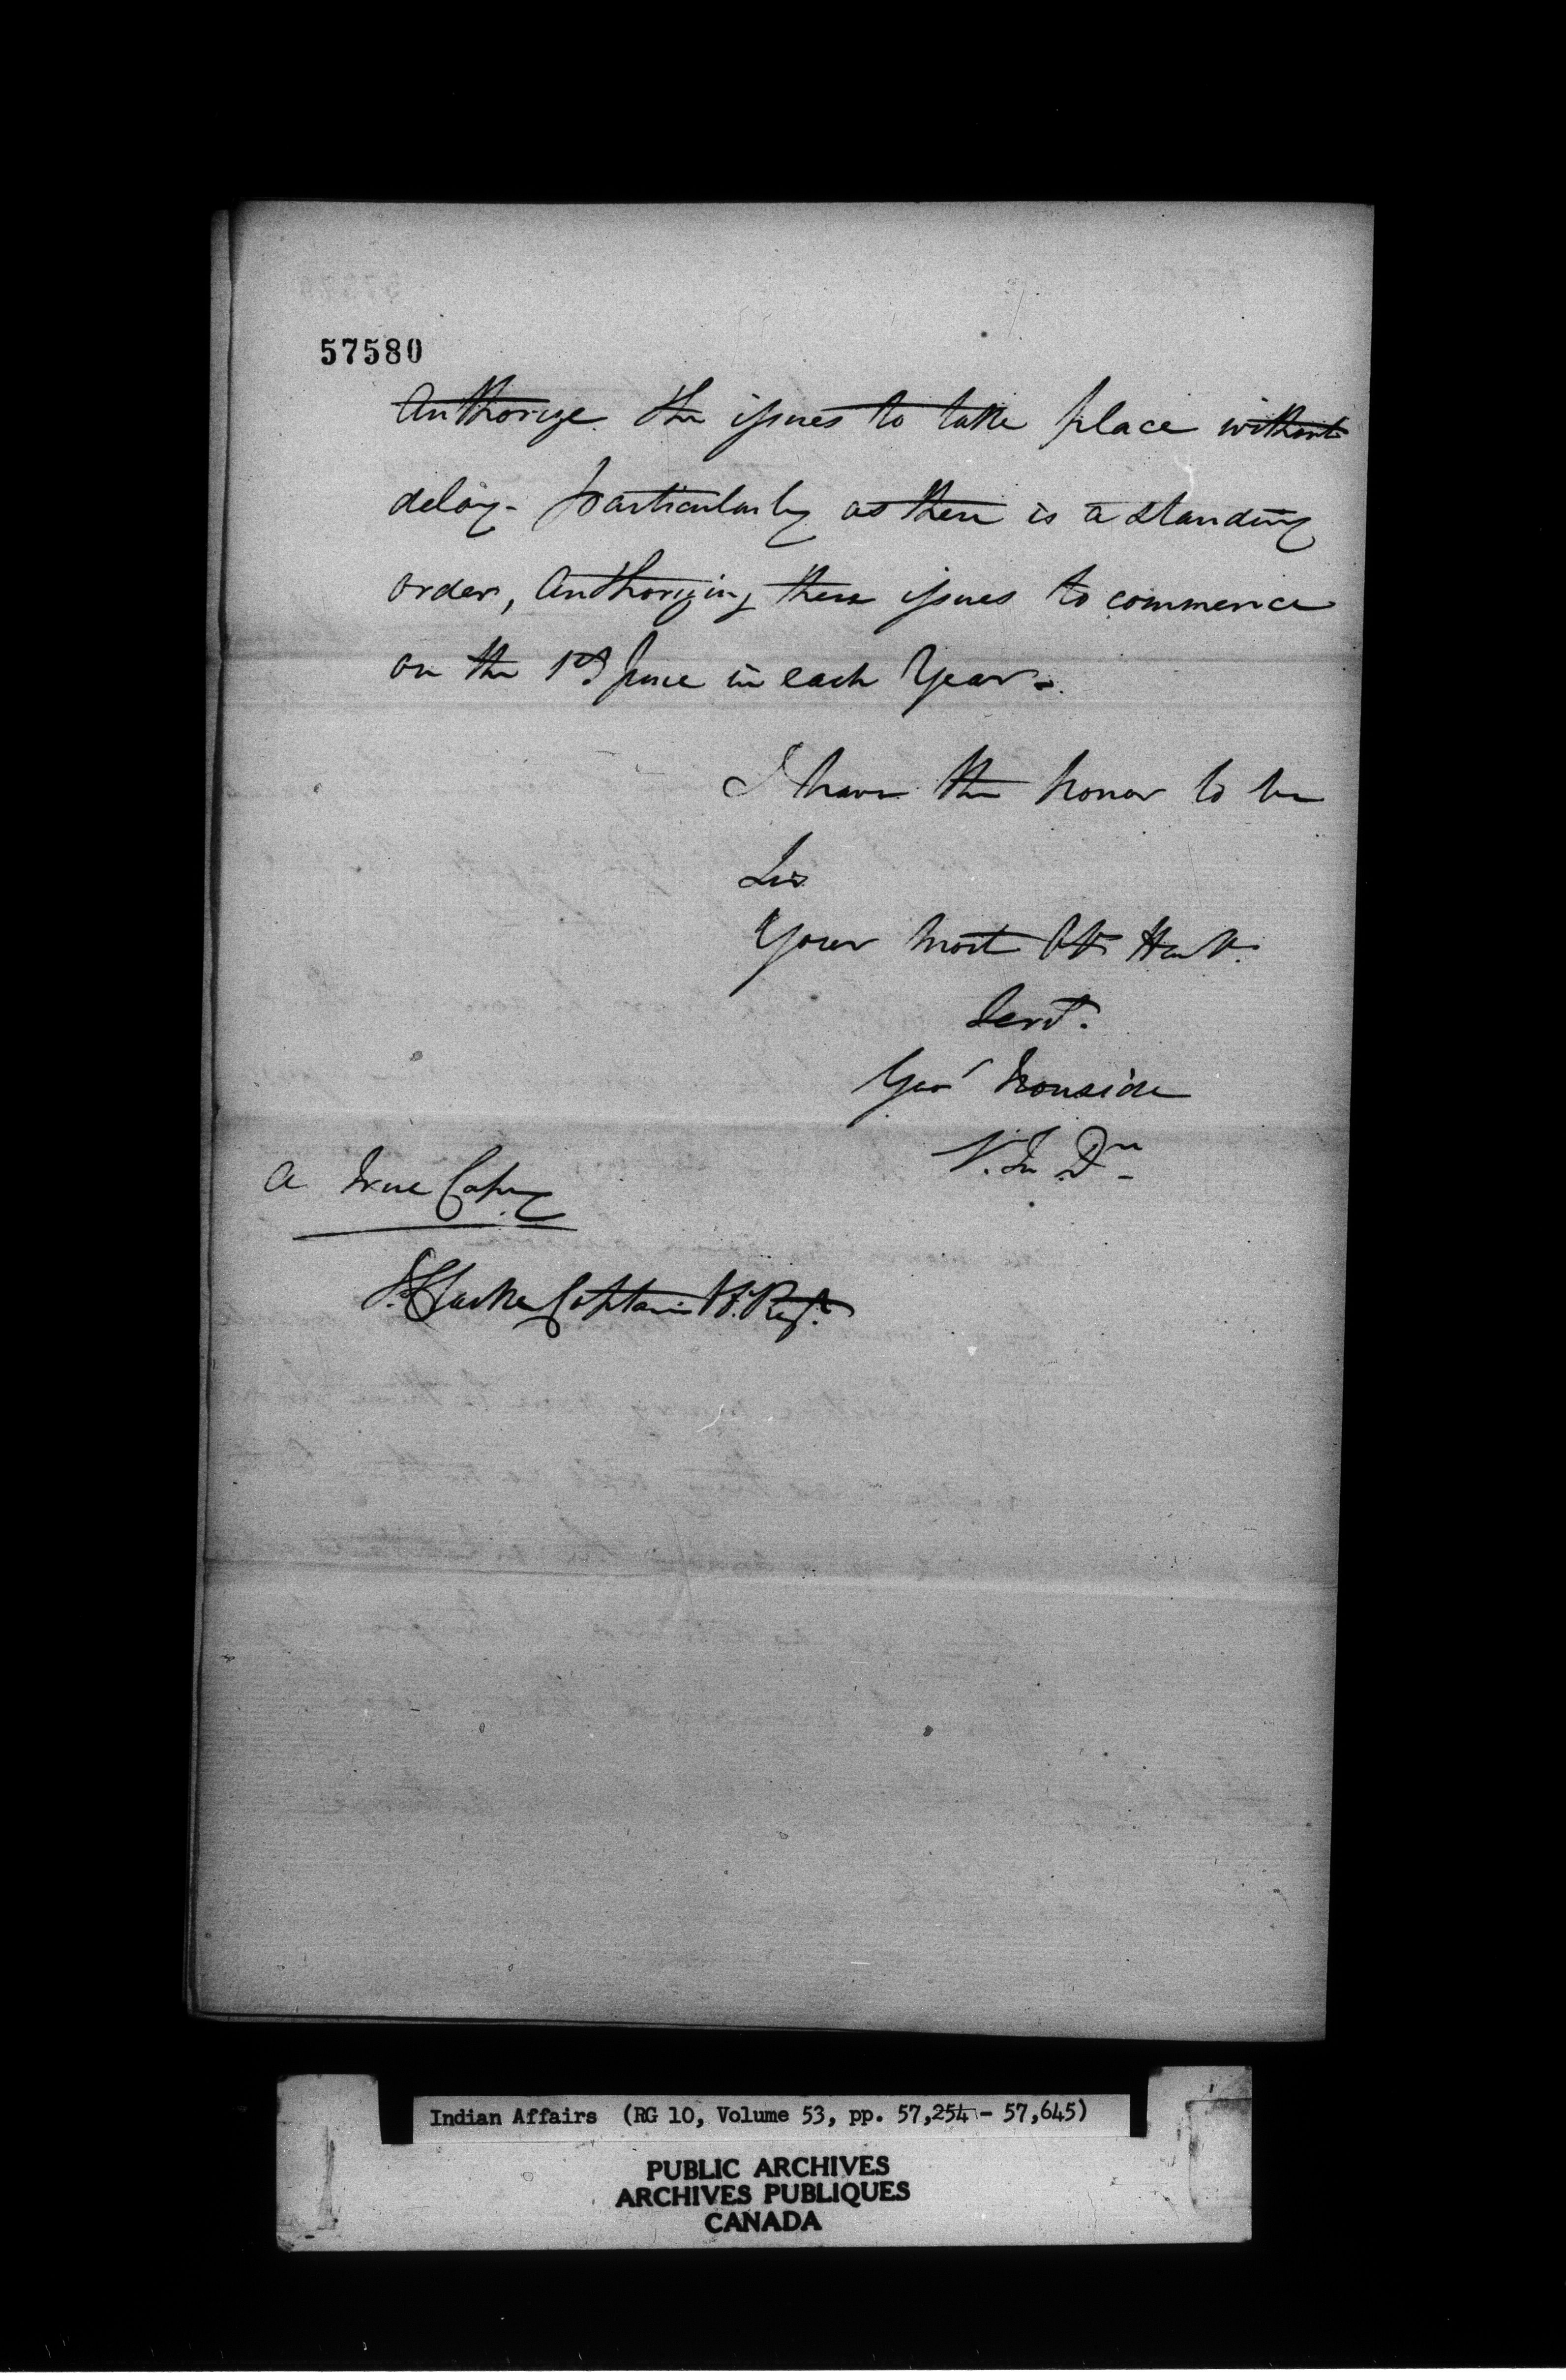 57580
Authorize the issues to take place without
delay - particularly as there is a standing
order, Authorizing these issues to commence
on the 1st June in each Year -
I have the honor to be
Sir
Your Most Obt Humb.
Servt.
Geo Ironside
S. I. Dn
A True Copy
Clarke Captain Regt.
Indian Affairs (RG 10, Volume 53, pp. 57,254 - 57,645)
PUBLIC ARCHIVES
ARCHIVES PUBLIQUES
CANADA